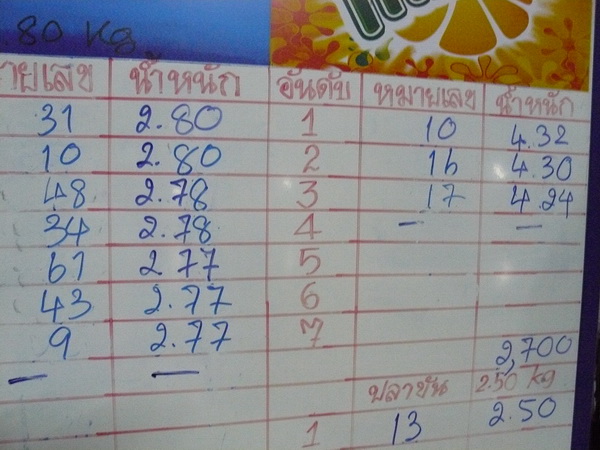 80 Kg
ายเลข น้ำหนัก อันดับ หมายเลข น้ำหนัก
31 2.80 1 10 4.32
10 2.80 2 16 4.30
48 2.78 3 17 4.24
34 2.78 4 — —
61 2.77 5
43 2.77 6
9 2.77 7
— — 2,700
ปลาชัน 2.50 kg
1 13 2.50